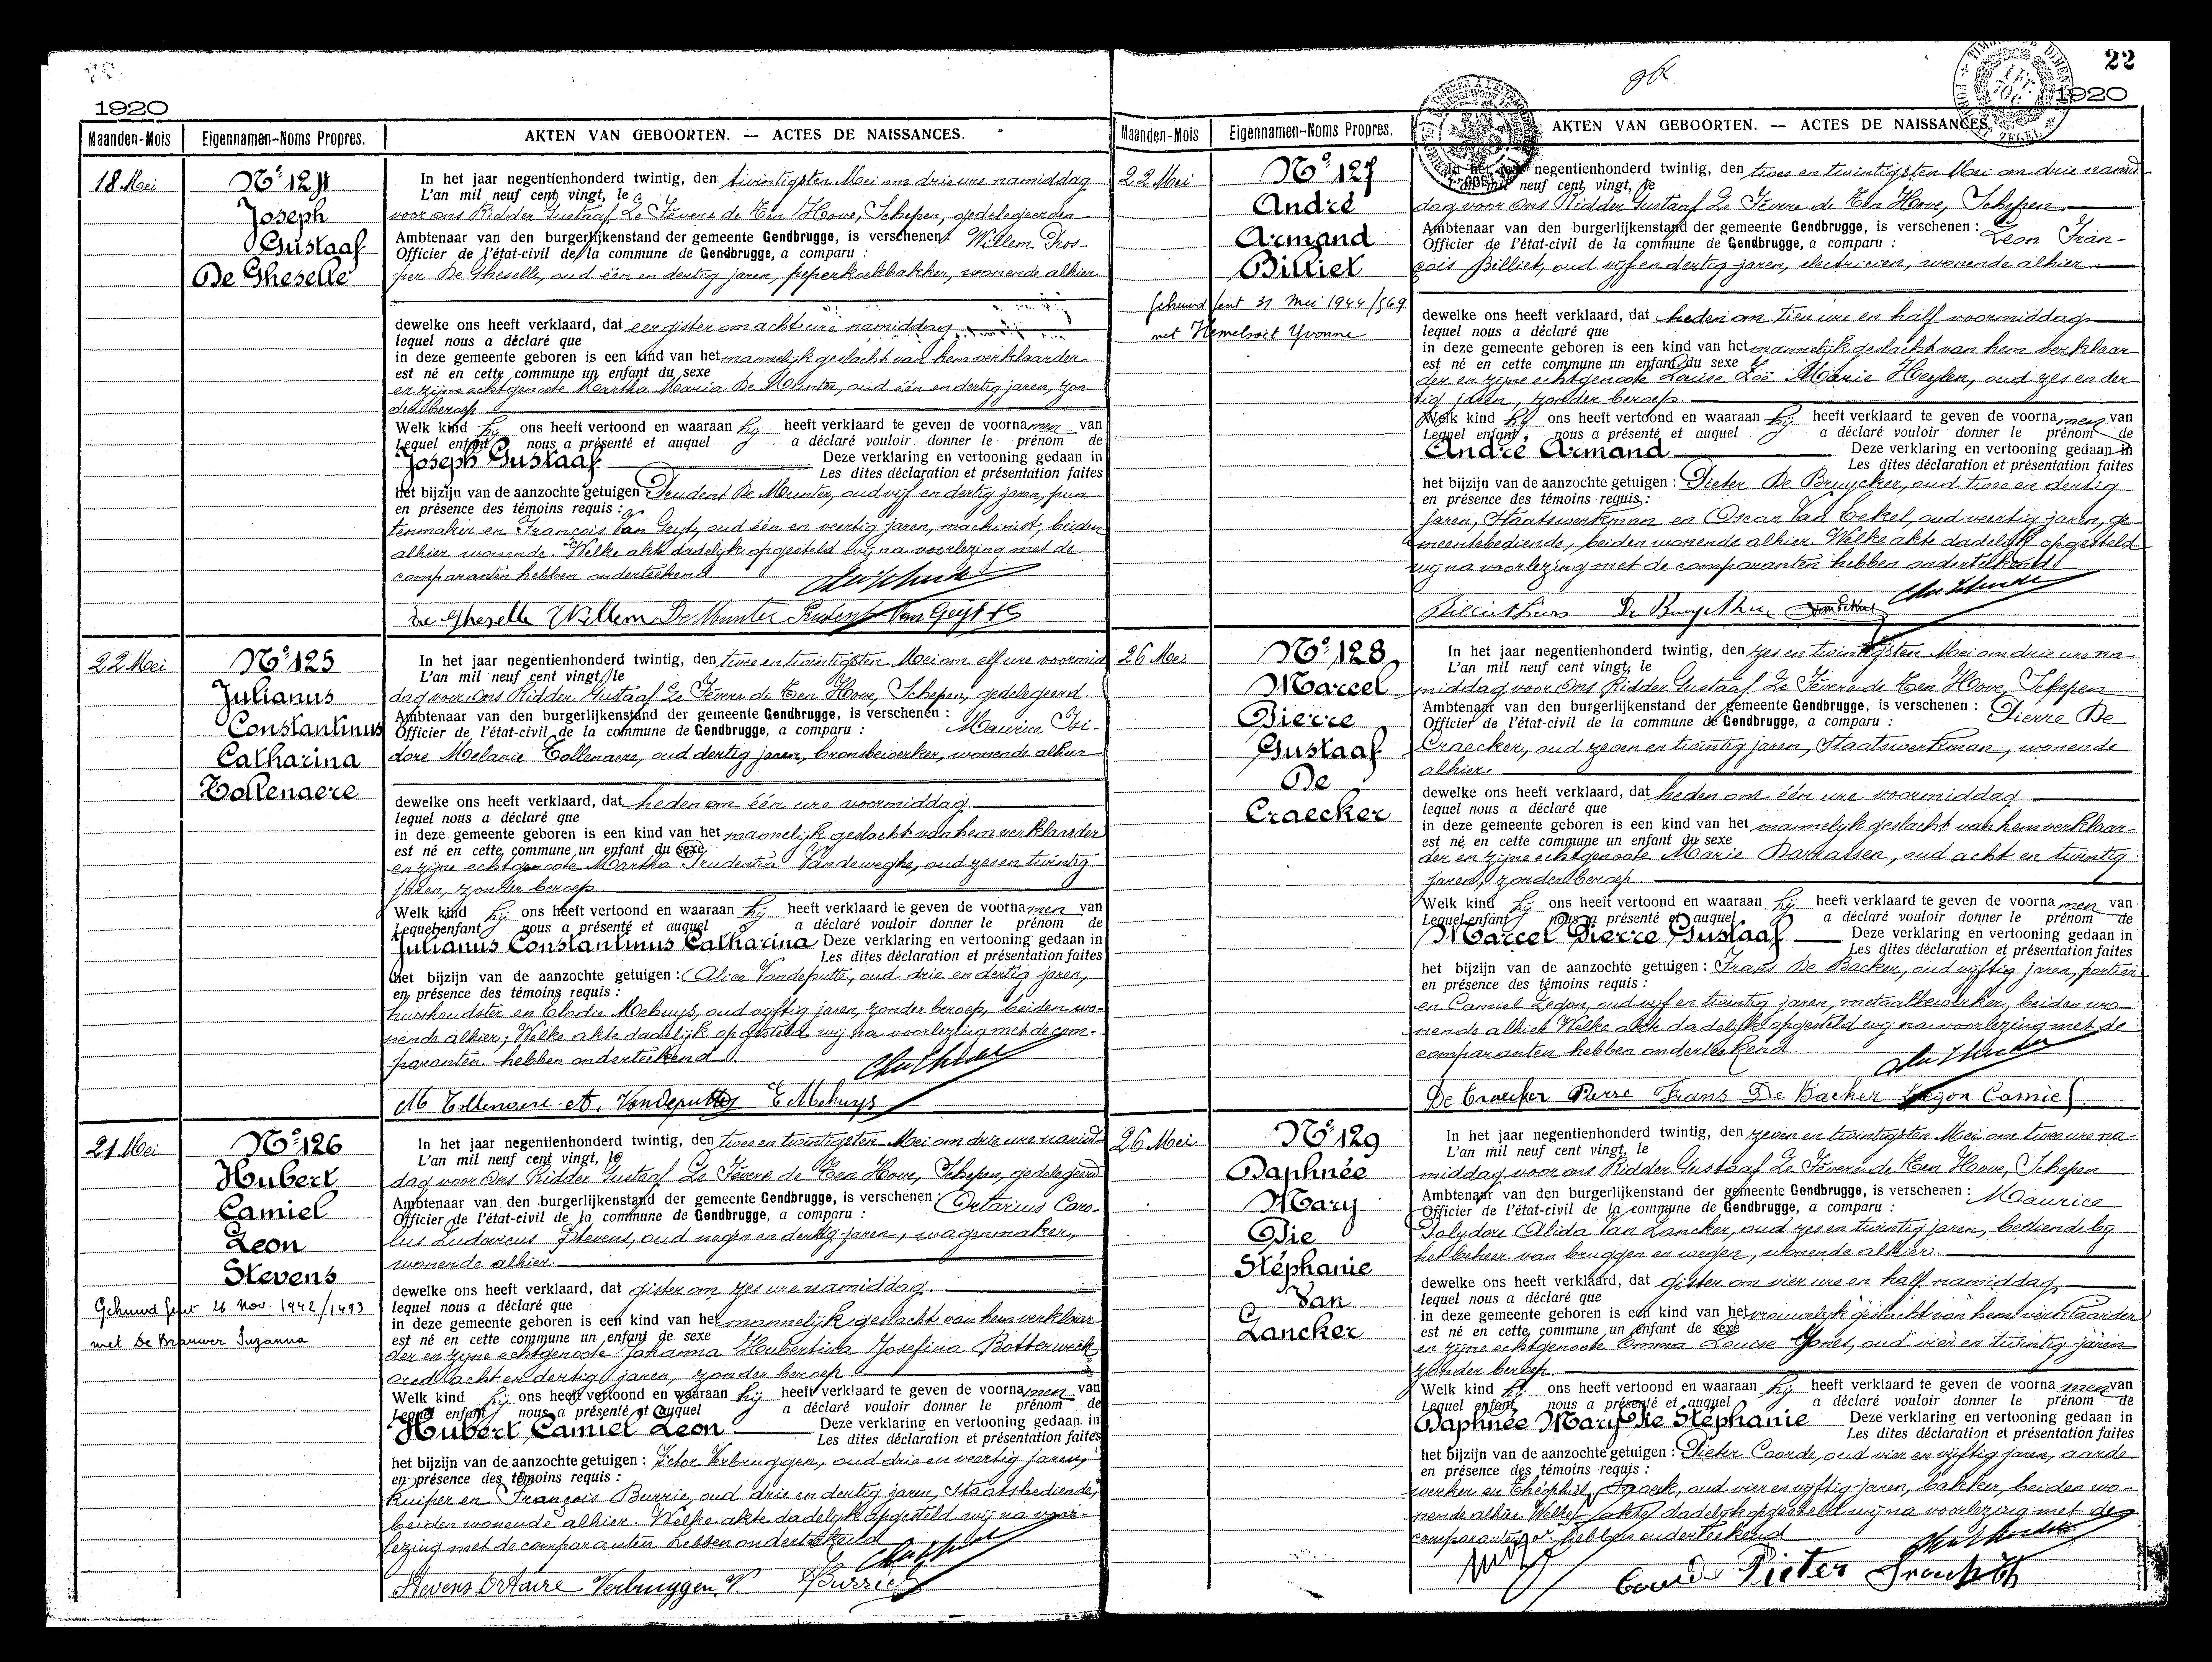 1920
Maanden-Mois Eigennamen-Noms Propres. AKTEN VAN GEBOORTEN. — ACTES DE NAISSANCES.
18 Mei
Nº 124
Joseph
Gustaaf
De Gheselle
In het jaar negentienhonderd twintig, den twintigsten Mei om drie ure namiddag
L'an mil neuf cent vingt, le
voor ons Ridder Gustaaf Le Févere de Ten Hove, Schepen, gedelegeerden
Ambtenaar van den burgerlijkenstand der gemeente Gendbrugge, is verschenen: Willem Pros-
Officier de l'état-civil de la commune de Gendbrugge, a comparu :
per De Gheselle, oud één en dertig jaren, peperkoekbakker, wonende alhier
dewelke ons heeft verklaard, dat eergister om acht ure namiddag
lequel nous a déclaré que
in deze gemeente geboren is een kind van het mannelijk geslacht van hem verklaarder
est né en cette commune un enfant du sexe
en zijne echtgenoote Martha Maria De Munter, oud één en dertig jaren, zon-
der beroep
Welk kind hij ons heeft vertoond en waaraan hij heeft verklaard te geven de voornamen van
Lequel enfant nous a présenté et auquel a déclaré vouloir donner le prénom de
Joseph Gustaaf Deze verklaring en vertooning gedaan in
Les dites déclaration et présentation faites
het bijzijn van de aanzochte getuigen : Prudent De Munter, oud vijf en dertig jaren, pun
en présence des témoins requis :
tenmaker en François Van Geyt, oud één en veertig jaren, machinist, beiden
alhier wonende. Welke akte dadelijk opgesteld wij na voorlezing met de
comparanten hebben onderteekend
De Gheselle Willem De Munter Prudent Van Geyt
22 Mei
Nº 125
Julianus
Constantinus
Catharina
Tollenaere
In het jaar negentienhonderd twintig, den twee en twintigsten Mei om elf ure voormid
L'an mil neuf cent vingt, le
dag voor ons Ridder Gustaaf Le Févere de Ten Hove, Schepen, gedelegeerd
Ambtenaar van den burgerlijkenstand der gemeente Gendbrugge, is verschenen :
Officier de l'état-civil de la commune de Gendbrugge, a comparu : Maurice Isi-
dore Melanie Tollenaere, oud dertig jaren, bronsbewerker, wonende alhier
dewelke ons heeft verklaard, dat heden om één ure voormiddag
lequel nous a déclaré que
in deze gemeente geboren is een kind van het mannelijk geslacht van hem verklaarder
est né en cette commune un enfant du sexe
en zijne echtgenoote Martha Prudentia Vandeweghe, oud zes en twintig
jaren, zonder beroep
Welk kind hij ons heeft vertoond en waaraan hij heeft verklaard te geven de voornamen van
Lequel enfant nous a présenté et auquel a déclaré vouloir donner le prénom de
Julianus Constantinus Catharina Deze verklaring en vertooning gedaan in
Les dites déclaration et présentation faites
het bijzijn van de aanzochte getuigen : Alice Vandeputte, oud drie en dertig jaren,
en présence des témoins requis :
huishoudster en Elodie Mehuys, oud vijftig jaren, zonder beroep, beiden wo-
nende alhier; Welke akte dadelijk opgesteld wij na voorlezing met de com-
paranten hebben onderteekend
M Tollenaere A. Vandeputte E Mehuys
21 Mei
Nº 126
Hubert
Camiel
Leon
Stevens
Gehuwd Gent 26 Nov. 1942/1493
met De Brauwer Suzanna
In het jaar negentienhonderd twintig, den twee en twintigsten Mei om drie ure namid-
L'an mil neuf cent vingt, le
dag voor ons Ridder Gustaaf Le Févere de Ten Hove, Schepen, gedelegeerd
Ambtenaar van den burgerlijkenstand der gemeente Gendbrugge, is verschenen : Ortarius Caro-
Officier de l'état-civil de la commune de Gendbrugge, a comparu :
lus Ludovicus Stevens, oud negen en dertig jaren, wagenmaker,
wonende alhier.
dewelke ons heeft verklaard, dat gister om zes ure namiddag.
lequel nous a déclaré que
in deze gemeente geboren is een kind van het mannelijk geslacht van hem verklaar
est né en cette commune un enfant de sexe
der en zijne echtgenoote Johanna Hubertina Josefina Botterweck
oud acht en dertig jaren, zonder beroep.
Welk kind hij ons heeft vertoond en waaraan hij heeft verklaard te geven de voornamen van
Lequel enfant nous a présenté et auquel a déclaré vouloir donner le prénom de
Hubert Camiel Leon Deze verklaring en vertooning gedaan in
Les dites déclaration et présentation faites
het bijzijn van de aanzochte getuigen : Victor Verbruggen, oud drie en veertig jaren,
en présence des témoins requis :
kuiper en François Burrie, oud drie en dertig jaren, Staatsbediende,
beiden wonende alhier. Welke akte dadelijk opgesteld wij na voor-
lezing met de comparanten hebben onderteekend
Stevens Ortaire Verbruggen V Burrie
22
1920
Maanden-Mois Eigennamen-Noms Propres. AKTEN VAN GEBOORTEN. — ACTES DE NAISSANCES.
22 Mei
Nº 127
André
Armand
Billiet
Gehuwd Gent 31 Mei 1944/569
met Hemelsoit Yvonne
In het jaar negentienhonderd twintig, den twee en twintigsten Mei om drie namid
L'an mil neuf cent vingt, le
dag voor ons Ridder Gustaaf Le Févere de Ten Hove, Schepen
Ambtenaar van den burgerlijkenstand der gemeente Gendbrugge, is verschenen : Leon Fran-
Officier de l'état-civil de la commune de Gendbrugge, a comparu :
çois Billiet, oud vijf en dertig jaren, electricien, wonende alhier
dewelke ons heeft verklaard, dat heden om tien ure en half voormiddag
lequel nous a déclaré que
in deze gemeente geboren is een kind van het mannelijk geslacht van hem verklaar-
est né en cette commune un enfant du sexe
der en zijne echtgenoote Louise Zoë Marie Heylen, oud zes en der
tig jaren, zonder beroep.
Welk kind hij ons heeft vertoond en waaraan hij heeft verklaard te geven de voornamen van
Lequel enfant, nous a présenté et auquel a déclaré vouloir donner le prénom de
André Armand Deze verklaring en vertooning gedaan in
Les dites déclaration et présentation faites
het bijzijn van de aanzochte getuigen : Pieter De Bruycker, oud twee en dertig
en présence des témoins requis :
jaren, Staatswerkman en Oscar Van Eekel, oud veertig jaren, ge-
meentebediende, beiden wonende alhier. Welke akte dadelijk opgesteld
wij na voorlezing met de comparanten hebben onderteekend
26 Mei
Nº 128
Marcel
Pierre
Gustaaf
De
Craecker
In het jaar negentienhonderd twintig, den zes en twintigsten Mei om drie ure na-
L'an mil neuf cent vingt, le
middag voor ons Ridder Gustaaf Le Févere de Ten Hove, Schepen
Ambtenaar van den burgerlijkenstand der gemeente Gendbrugge, is verschenen : Pierre De
Officier de l'état-civil de la commune de Gendbrugge, a comparu :
Craecker, oud zeven en twintig jaren, Staatswerkman, wonende
alhier.
dewelke ons heeft verklaard, dat heden om één ure voormiddag
lequel nous a déclaré que
in deze gemeente geboren is een kind van het mannelijk geslacht van hem verklaar-
est né en cette commune un enfant du sexe
der en zijne echtgenoote Marie Barrassen, oud acht en twintig
jaren, zonder beroep.
Welk kind hij ons heeft vertoond en waaraan hij heeft verklaard te geven de voornamen van
Lequel enfant nous a présenté et auquel a déclaré vouloir donner le prénom de
Marcel Pierre Gustaaf Deze verklaring en vertooning gedaan in
Les dites déclaration et présentation faites
het bijzijn van de aanzochte getuigen : Frans De Backer, oud vijftig jaren, portier
en présence des témoins requis :
en Camiel Legon, oud vijf en twintig jaren, metaalbewerker, beiden wo-
nende alhier Welke akte dadelijk opgesteld wij na voorlezing met de
comparanten hebben onderteekend.
De Craecker Pierre Frans De Backer Legon Camiel
26 Mei
Nº 129
Daphnée
Mary
Pie
Stéphanie
Van
Lancker
In het jaar negentienhonderd twintig, den zeven en twintigsten Mei om twee ure na-
L'an mil neuf cent vingt, le
middag voor ons Ridder Gustaaf Le Févere de Ten Hove, Schepen
Ambtenaar van den burgerlijkenstand der gemeente Gendbrugge, is verschenen : Maurice
Officier de l'état-civil de la commune de Gendbrugge, a comparu :
Polydore Alida Van Lancker, oud zes en twintig jaren, bediende bij
het beheer van bruggen en wegen, wonende alhier.
dewelke ons heeft verklaard, dat gister om vier ure en half namiddag
lequel nous a déclaré que
in deze gemeente geboren is een kind van het vrouwelijk geslacht van hem verklaarder
est né en cette commune un enfant de sexe
en zijne echtgenoote Emma Louise Jones, oud vier en twintig jaren
zonder beroep.
Welk kind hij ons heeft vertoond en waaraan hij heeft verklaard te geven de voornamen van
Lequel enfant nous a présenté et auquel a déclaré vouloir donner le prénom de
Daphnée Mary Pie Stéphanie Deze verklaring en vertooning gedaan in
Les dites déclaration et présentation faites
het bijzijn van de aanzochte getuigen : Pieter Coorde, oud vier en vijftig jaren, aarde
en présence des témoins requis :
werker en Théophiel Snoeck, oud vier en vijftig jaren, bakker, beiden wo-
nende alhier. Welke akte dadelijk opgesteld wij na voorlezing met de
comparanten hebben onderteekend
Pieter